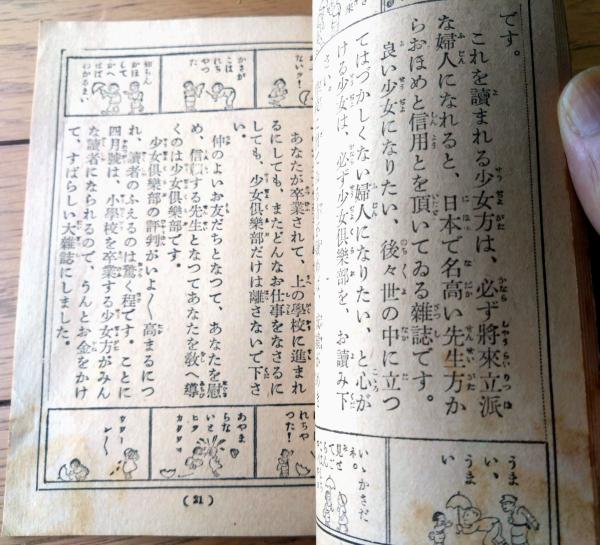 です。
これを讀まれる少女方は、必ず將來立派
な婦人になれると、日本で名高い先生方か
らおほめと信用とを頂いてゐる雜誌です。
良い少女になりたい、後々世の中に立つ
てはづかしくない婦人になりたい、と心が
ける少女は、必ず少女俱樂部を、お讀み下
さい。
いゝかさだ
ネ。
見せ
てご
らん
うまい、
うまい
あなたが卒業されて、上の學校に進まれ
るにしても、またどんなお仕事をなさるに
しても、少女俱樂部だけは離さないで下さ
い。
仲のよいお友だちとなつて、あなたを慰
め、信賴する先生となつてあなたを敎へ導
くのは少女俱樂部です。
少女俱樂部の評判がいよ〱高まるにつ
れ、讀者のふえるのは驚く程です。ことに
四月號は、小學校を卒業する少女方がみん
な讀者になられるので、うんとお金をかけ
て、すばらしい大雜誌にしました。
ないター
かさが
こは
れち
やつ
た
れちや
つた!
あやま
らな
いと
(21)